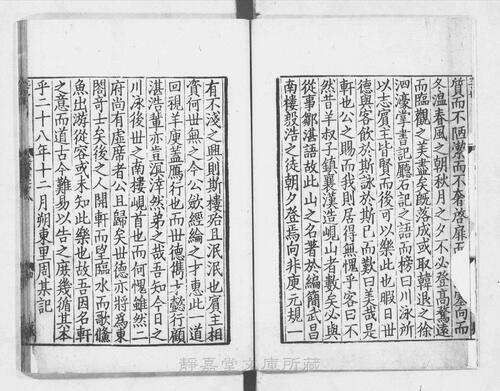 質而不陋潔而不奢啓扉而
冬溫春風之朝秋月之夕不必登高騖遠
而臨觀之美盡矣既落成或取韓退之徐
泗濠掌書記廳石記之語而榜曰川泳所
以志賓主皆賢而後可以樂此也暇日世
德與客飲於斯詠於斯已而歎曰美哉是
軒也公之賜而我則居得無愧乎客曰不
然昔羊叔子鎮襄漢造峴山者數矣必與
從事鄒湛語故此山之名著於編簡武昌
南樓殷浩之徒朝夕登焉向非庾元規一
有不淺之興則斯樓殆且泯泯也賓主相
資何世無之今公歛經綸之才惠此一道
回視羊庾蓋鴈行也而世德儁士懿行顧
湛浩輩亦豈溟涬然弟之哉吾知今日之
川泳後世之南樓峴首也而何愧雖然二
府尚有虛席者公且歸矣世德亦將為東
閤奇士矣後之人開軒而望臨水而歌儵
魚出游從容或未知此樂也故吾因名軒
之意而道古今難易以告之庶幾循其本
乎二十八年十二月朔東里周某記
靜嘉堂文庫所藏